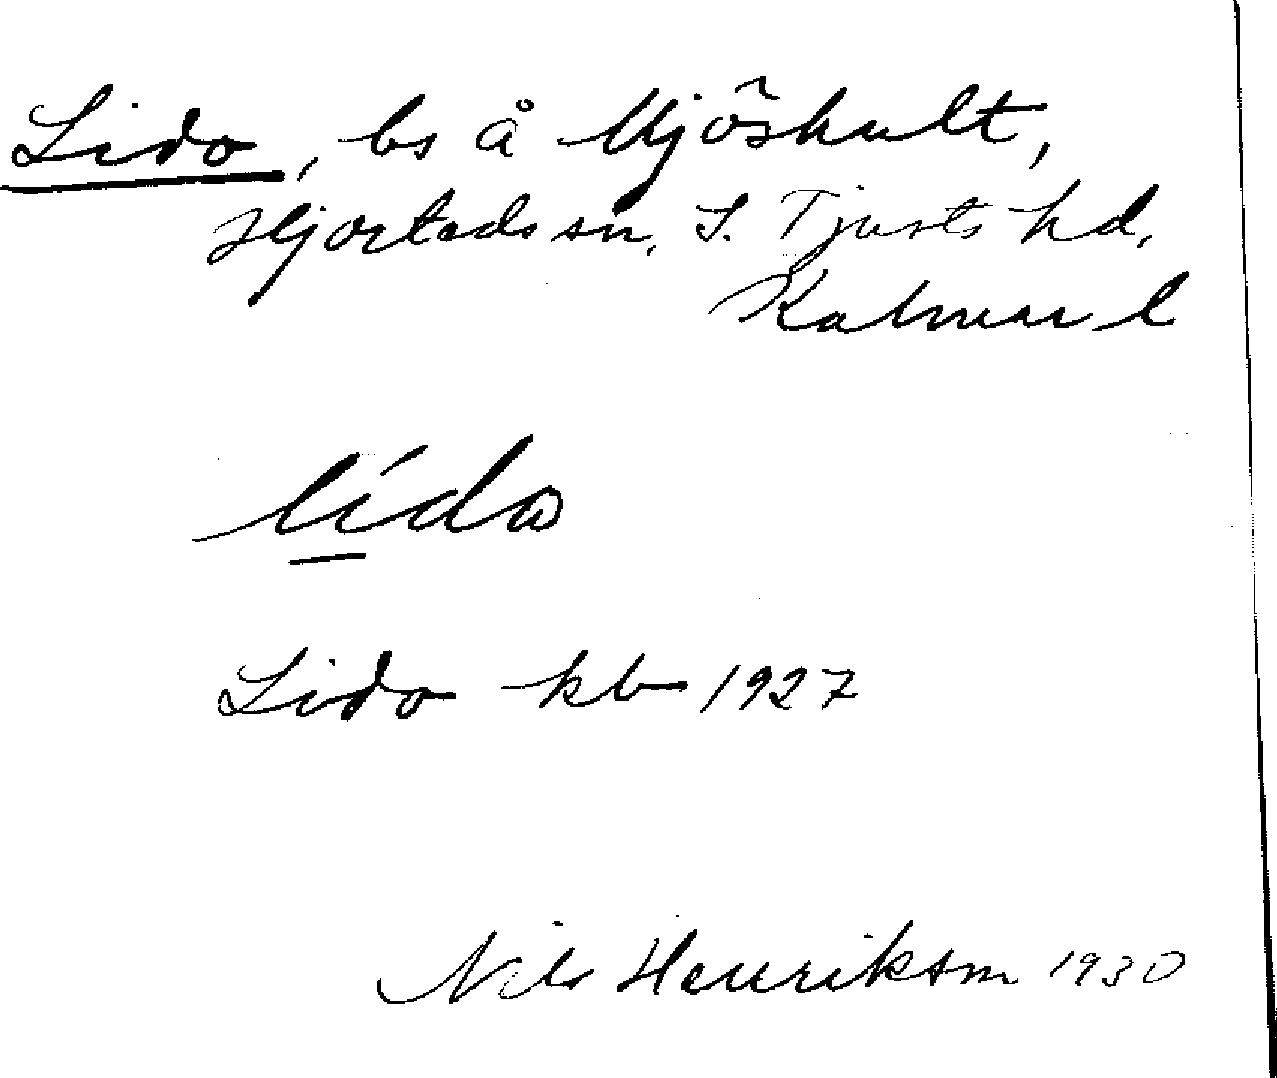 Lido, bs å Mjöshult,
Hjorteds sn, S. Tjusts hd,
Kalmar l
lído
Lido kb 1927
Nils Henrikson 1930